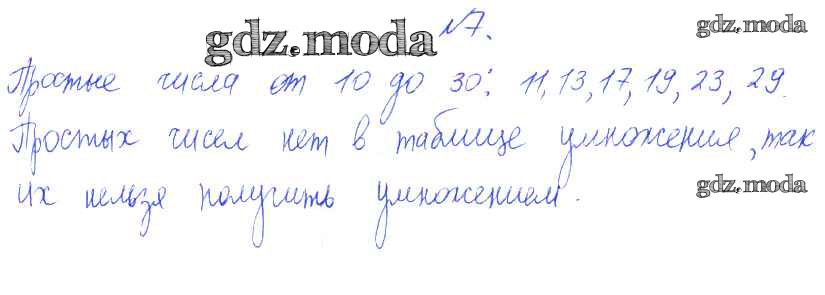 №7.
gdz.moda
gdz.moda
Простые числа от 10 до 30: 11, 13, 17, 19, 23, 29.
Простых чисел нет в таблице умножения, так
их нельзя получить умножением.
gdz.moda